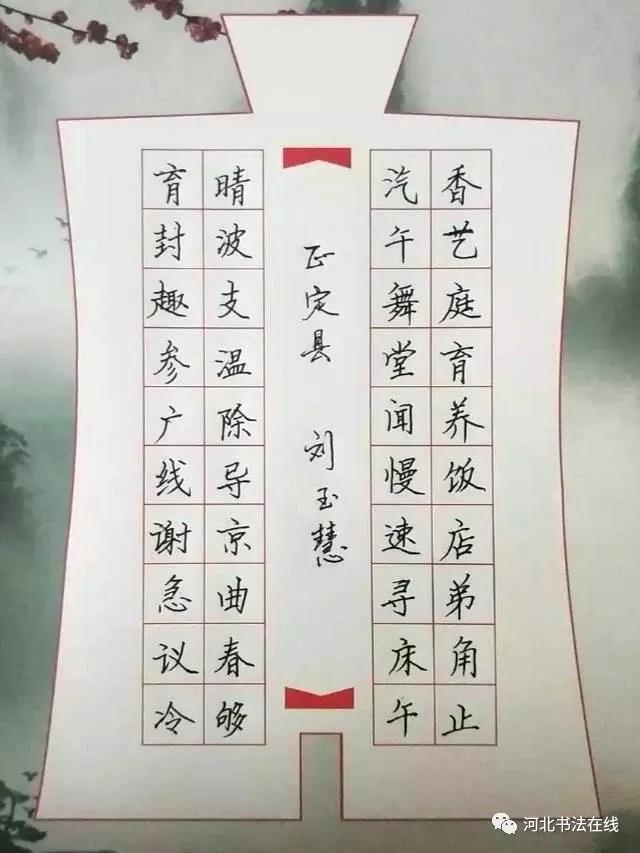 香艺庭育养饭店弟角止
汽午舞堂闻慢速寻床午
正定县 刘玉慧
晴波支温除导京曲春够
育封趣参广线谢急议冷
河北书法在线